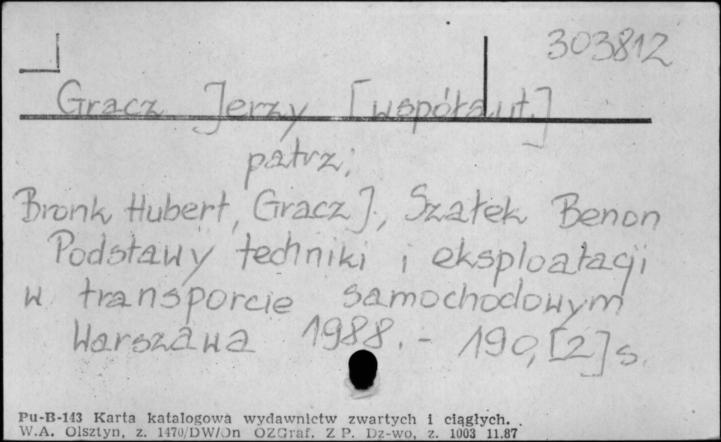 303812
Gracz Jerzy [współaut.]
patrz:
Bronk Hubert, Gracz J., Szałek Benon
Podstawy techniki i eksploatacji
w transporcie samochodowym
Warszawa 1988. - 190, [2] s.
Pu-B-143 Karta katalogowa wydawnictw zwartych i ciągłych.
W.A. Olsztyn, z. 1470/DW/On OZGraf. Z P. Dz-wo, z. 1003 11.87